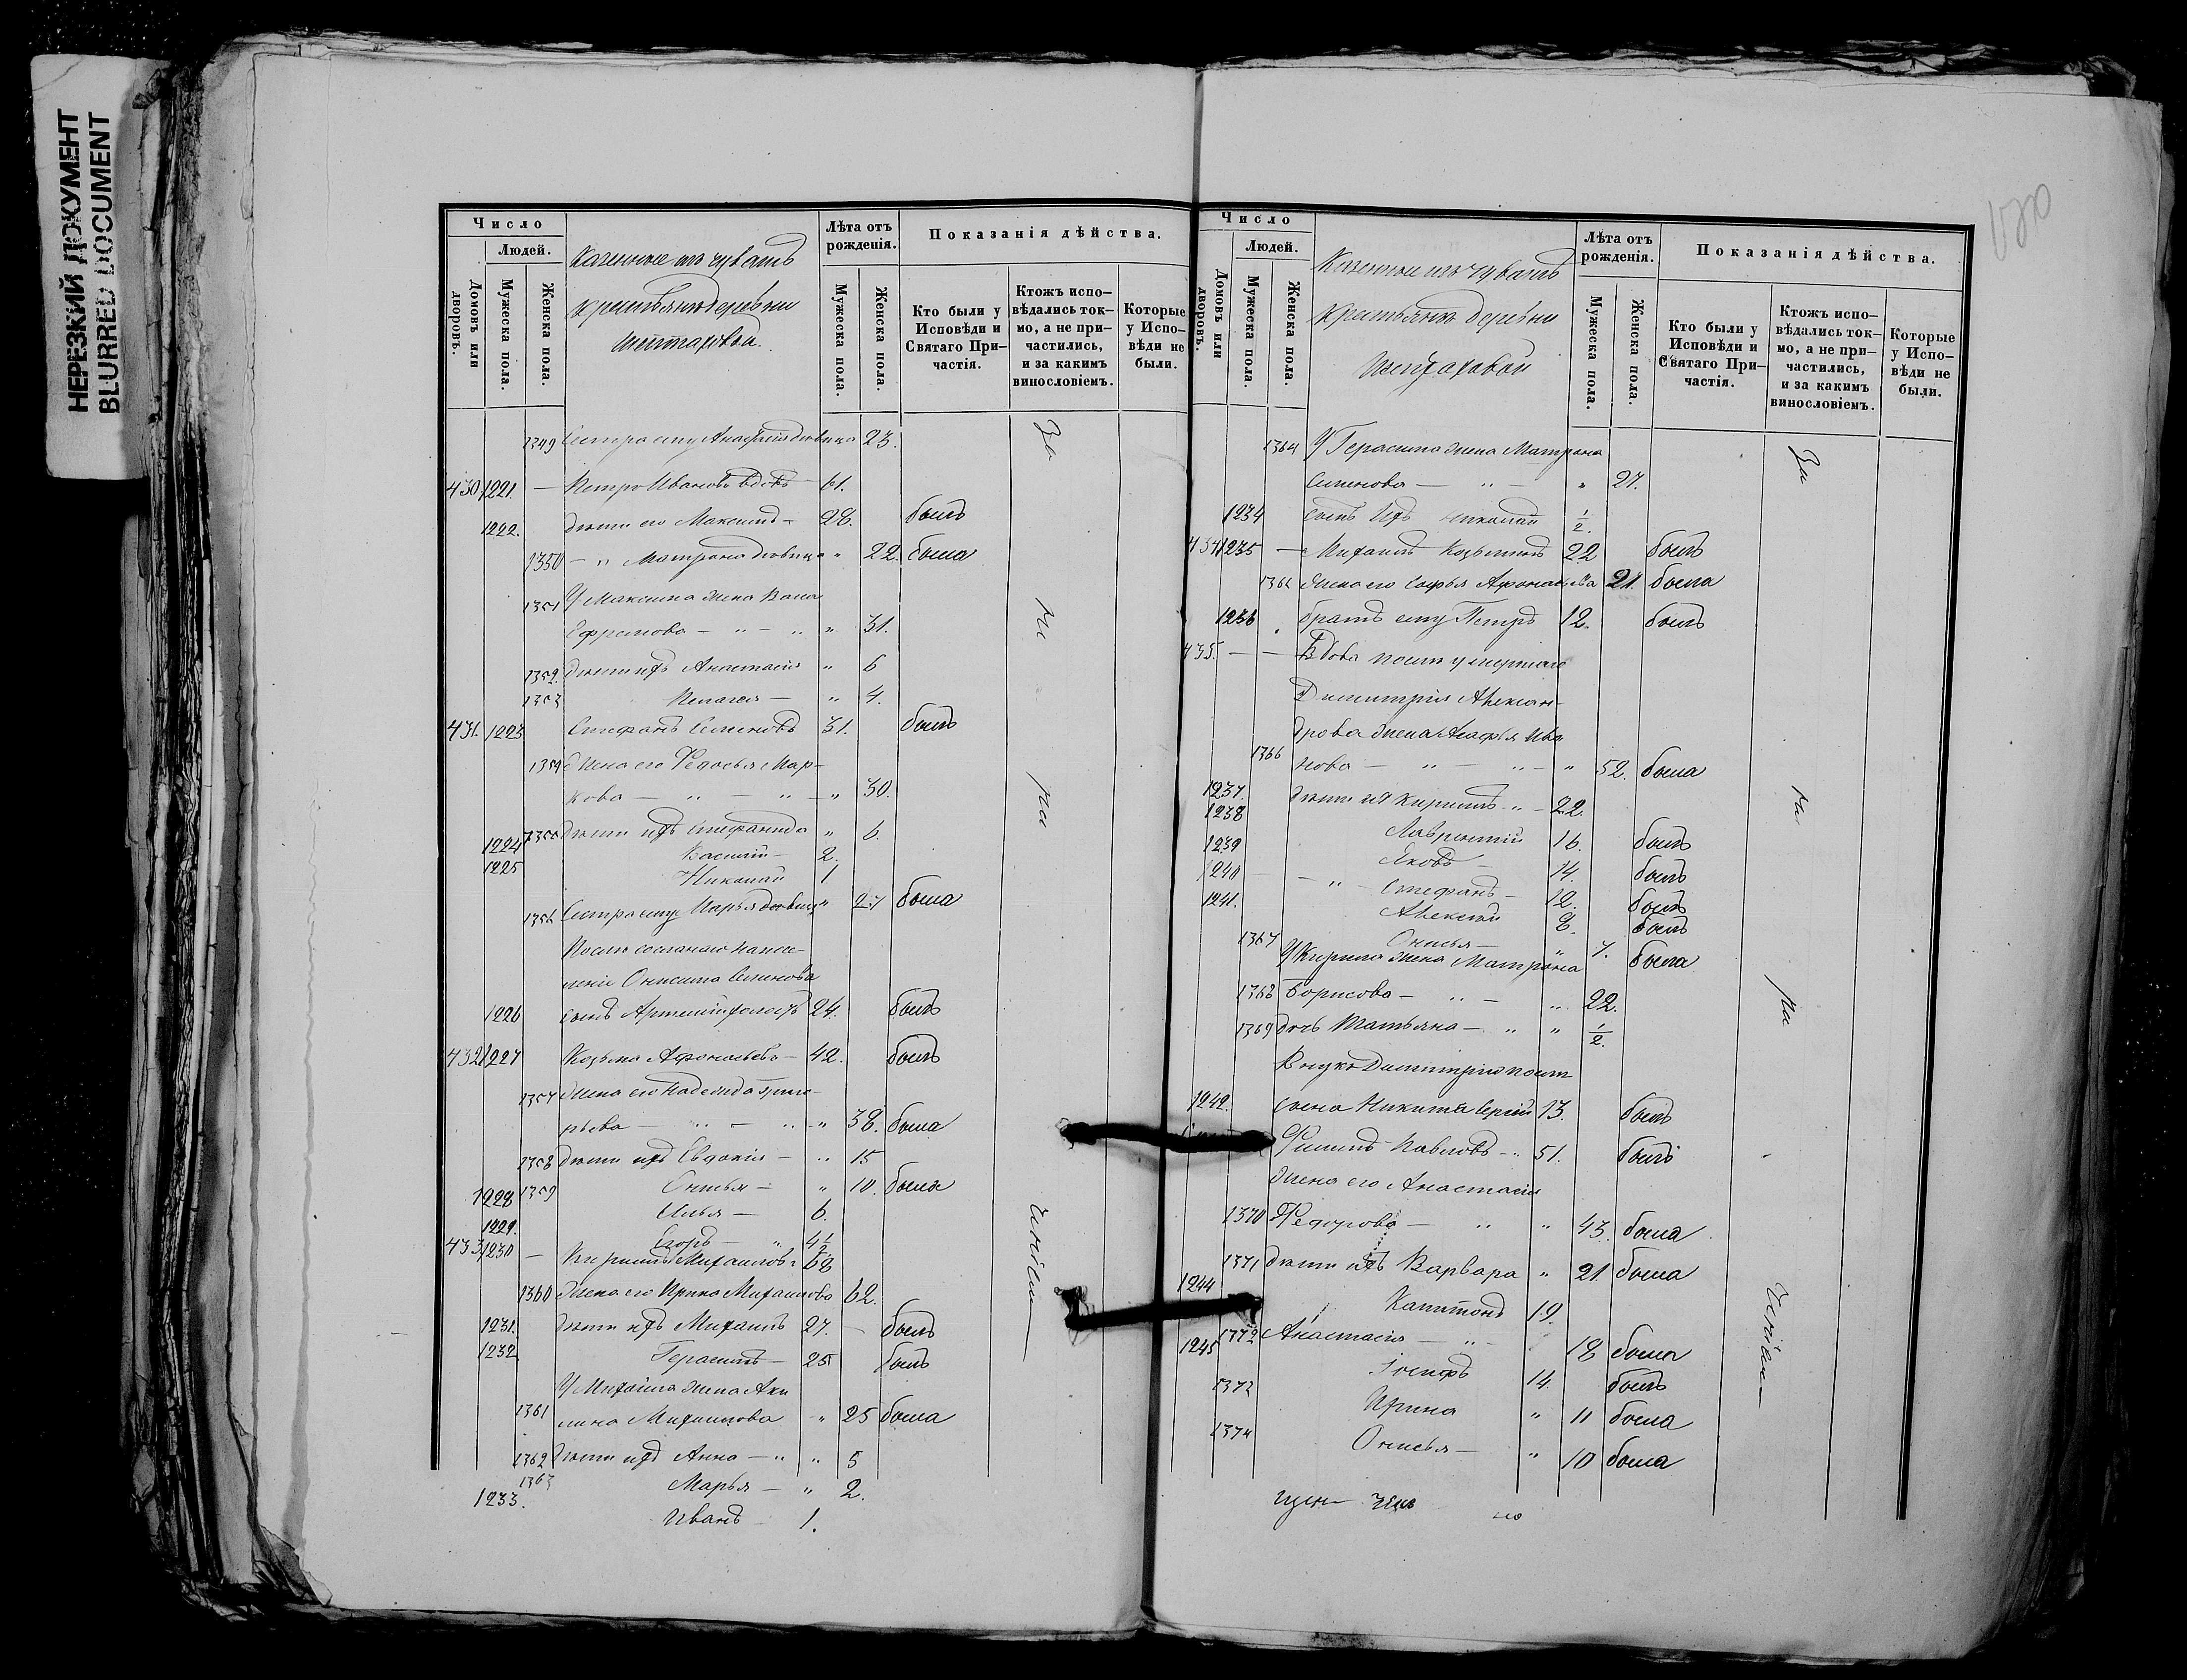 НЕРЕЗКИЙ ДОКУМЕНТ
BLURRED DOCUMENT
Число
Людей.
Домовъ или дворовъ.
Мужеска пола.
Женска пола.
Казенные изъ чувашъ
крестьяне деревни
Лѣта отъ рожденія.
Мужеска пола.
Женска пола.
Показанія дѣйства.
Кто были у Исповѣди и Святаго При-частія.
Ктожъ испо-вѣдались ток-мо, а не при-частились, и за какимъ винословіемъ.
Которые у Испо-вѣди не были.
1349 Сестра ему Анастасія дѣвица 23.
430 1221. — Петръ Ивановъ вдовъ 61.
1222. дѣти его Максимъ — 28. былъ
1350 — " Матрона дѣвица " 22. была
1351 У Максима жена Васса
Ефремова — " — " " 31.
1352. дѣти ихъ Анастасія " 6
1353 Пелагея — " 4.
431. 1223 Стефанъ Семеновъ 31. былъ
1354 жена его Ѳедосья Мар-
кова — " — " — " 30.
1355 дѣти ихъ Степанида " 6.
1224 Василій — 2.
1225 Николай 1
1356 Сестра ему Марья дѣвица " 27 была
Онисима Семенова
1226 сынъ Артемій холостъ 24. былъ
432 1227 Козьма Афонасьевъ — 42. былъ
1357 жена его Надежда Григо-
рьева — " — " — " 38. была
1358 дѣти ихъ Евдокія — " 15
1359 Онисья — " 10. была
1228 Илья — 6.
1229. Егоръ — " 4½
433 1230 — Кириллъ Михаиловъ 68
1360 жена его Ирина Михаилова 62.
1231. дѣти ихъ Михаилъ 27. — былъ
1232. Герасимъ — 25 былъ
У Михаила жена Аки
1361 лина Михаилова " 25 была
1362 дѣти ихъ Анна — " " 5
1363 Марья — " 2.
1233. Иванъ — 1.
За
ми
ни
Число
Людей.
Домовъ или дворовъ.
Мужеска пола.
Женска пола.
Казенные изъ чувашъ
крестьяне деревни
Лѣта отъ рожденія.
Мужеска пола.
Женска пола.
Показанія дѣйства.
Кто были у Исповѣди и Святаго При-частія.
Ктожъ испо-вѣдались ток-мо, а не при-частились, и за какимъ винословіемъ.
Которые у Испо-вѣди не были.
1364 У Герасима жена Матрона
Семенова — " — " 27.
1234 сынъ ихъ Николай ½.
434 1235 — Михаилъ Козьминъ 22 былъ
1365 жена его Софья Афонасьева 21. была
1236 братъ ему Петръ 12. былъ
435. — — Вдова послѣ умершаго
Димитрія Алексан-
дрова жена Агафья Ива
1366 нова — " — " — " 52. была
1237. дѣти ея Кириллъ " — 22.
1238 Лаврентій 16. былъ
1239 Яковъ — 14. былъ
1240 — " — Стефанъ — 12. былъ
1241. Алексѣй 8. былъ
1367 Онисья — " 7. была
У Кирила жена Матрона
1368 Борисова — " — " 22.
1369 дочь Татьяна — " " ½.
Внукъ Димитрію послѣ
1242. сына Никиты Сергѣй 13. былъ
Филипъ Павловъ — " 51. былъ
жена его Анастасія
1370 Ѳедорова — " " 43. была
1371 дѣти ихъ Варвара " 21. была
1244 Капитонъ 19.
1372 Анастасія — " — 18 была
1245 Іосифъ 14. былъ
1373 Ирина " 11 была
1374 Онисья — " 10 была
За
ми